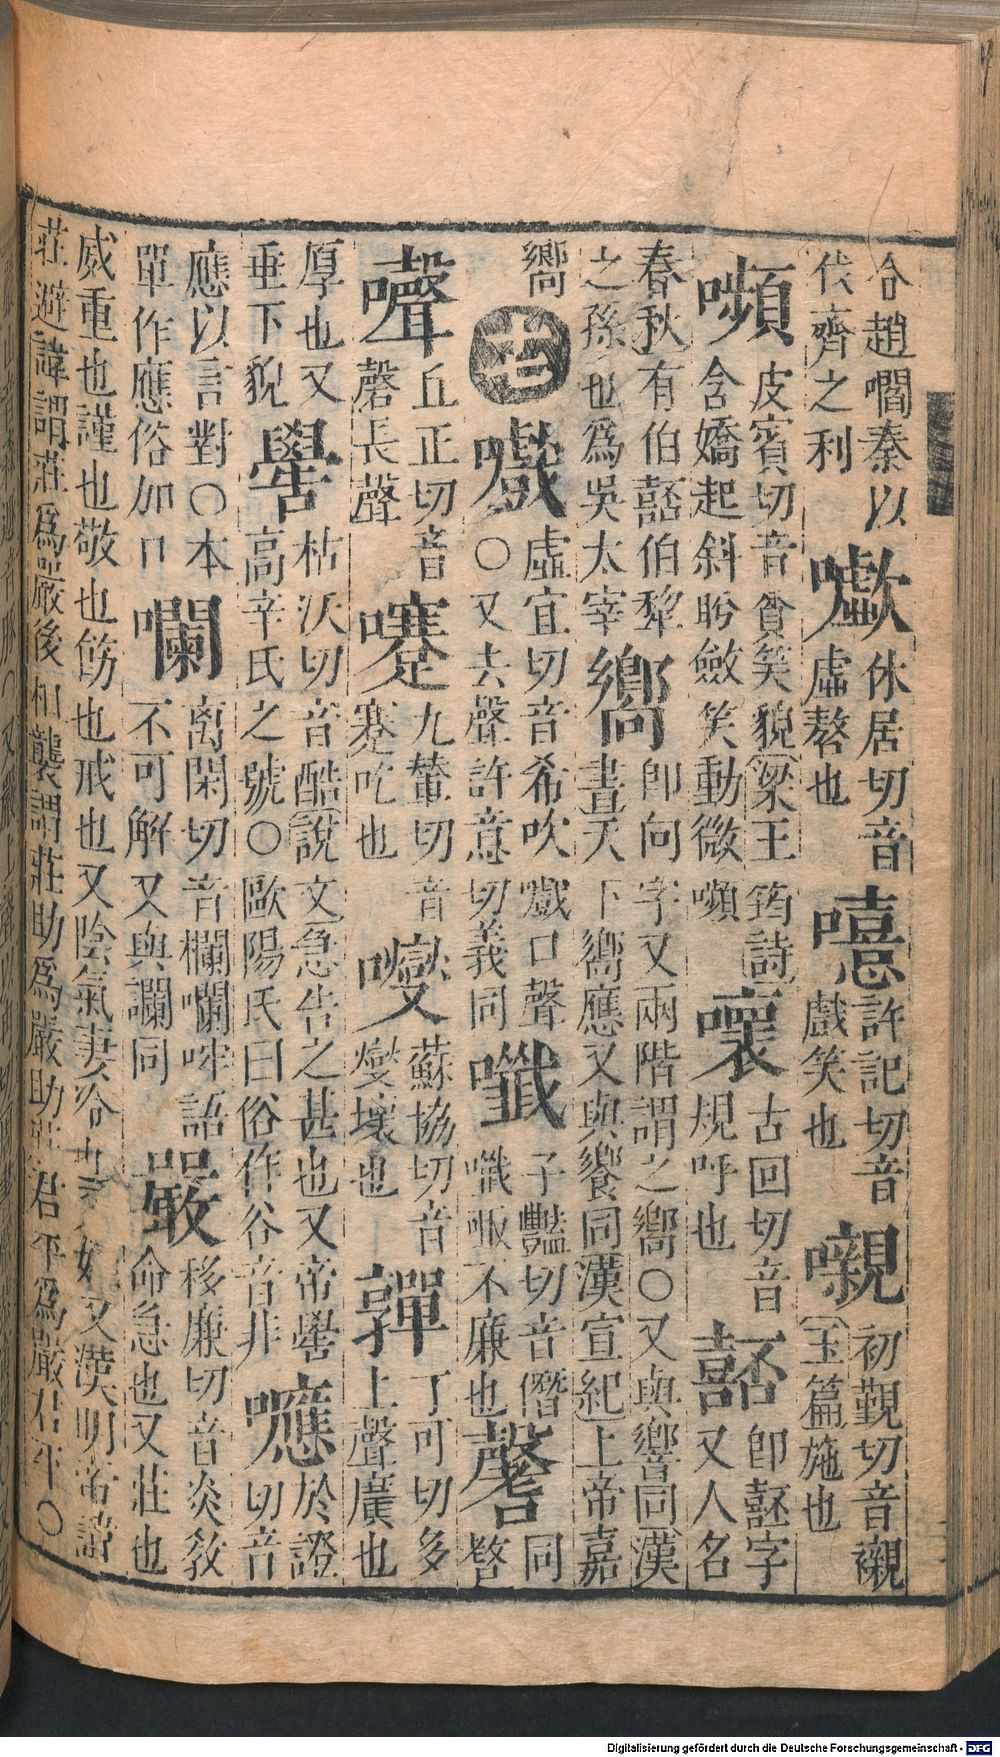 合趙嚪秦以
伐齊之利
休居切音
虛嗸也
許記切音
戲笑也
嚫
初覲切音襯
玉篇施也
嚬
皮賓切音貧笑貌梁王筠詩
含嬌起斜盻斂笑動微嚬
古回切音
規呼也
嚭
即嚭字
又人名
春秋有伯嚭伯犂
之孫也爲吳太宰
嚮
即向字又兩階謂之嚮○又與響同漢
晝天下嚮應又與饗同漢宣紀上帝嘉
嚮
嚱
虛宜切音希吹嚱口聲
○又去聲許意切義同
子豔切音僭
不廉也
同
丘正切音
磬長聲
九輦切音
蹇吃也
蘇協切音
燮壞也
嚲
丁可切多
上聲廣也
厚也又
垂下貌
嚳
枯沃切音酷說文急告之甚也又帝嚳
高辛氏之號○歐陽氏曰俗作谷音非
噟
於證
切音
應以言對○本
單作應俗加口
囒
离閑切音欄囒哰語
不可解又與讕同
嚴
移廉切音炎教
命急也又莊也
威重也謹也敬也飭也戒也又陰氣妻冷也 又漢明帝諱
莊避諱謂莊爲嚴後相襲謂莊助爲嚴助莊君平爲嚴君平○
Digitalisierung gefördert durch die Deutsche Forschungsgemeinschaft - DFG